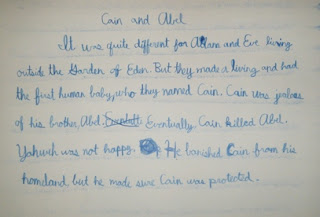 Cain and Abel
It was quite different for Adam and Eve living
outside the Garden of Eden. But they made a living and had
the first human baby, who they named Cain. Cain was jealous
of his brother, Abel. Eventually, Cain killed Abel.
Yahweh was not happy. He banished Cain from his
homeland but he made sure Cain was protected.